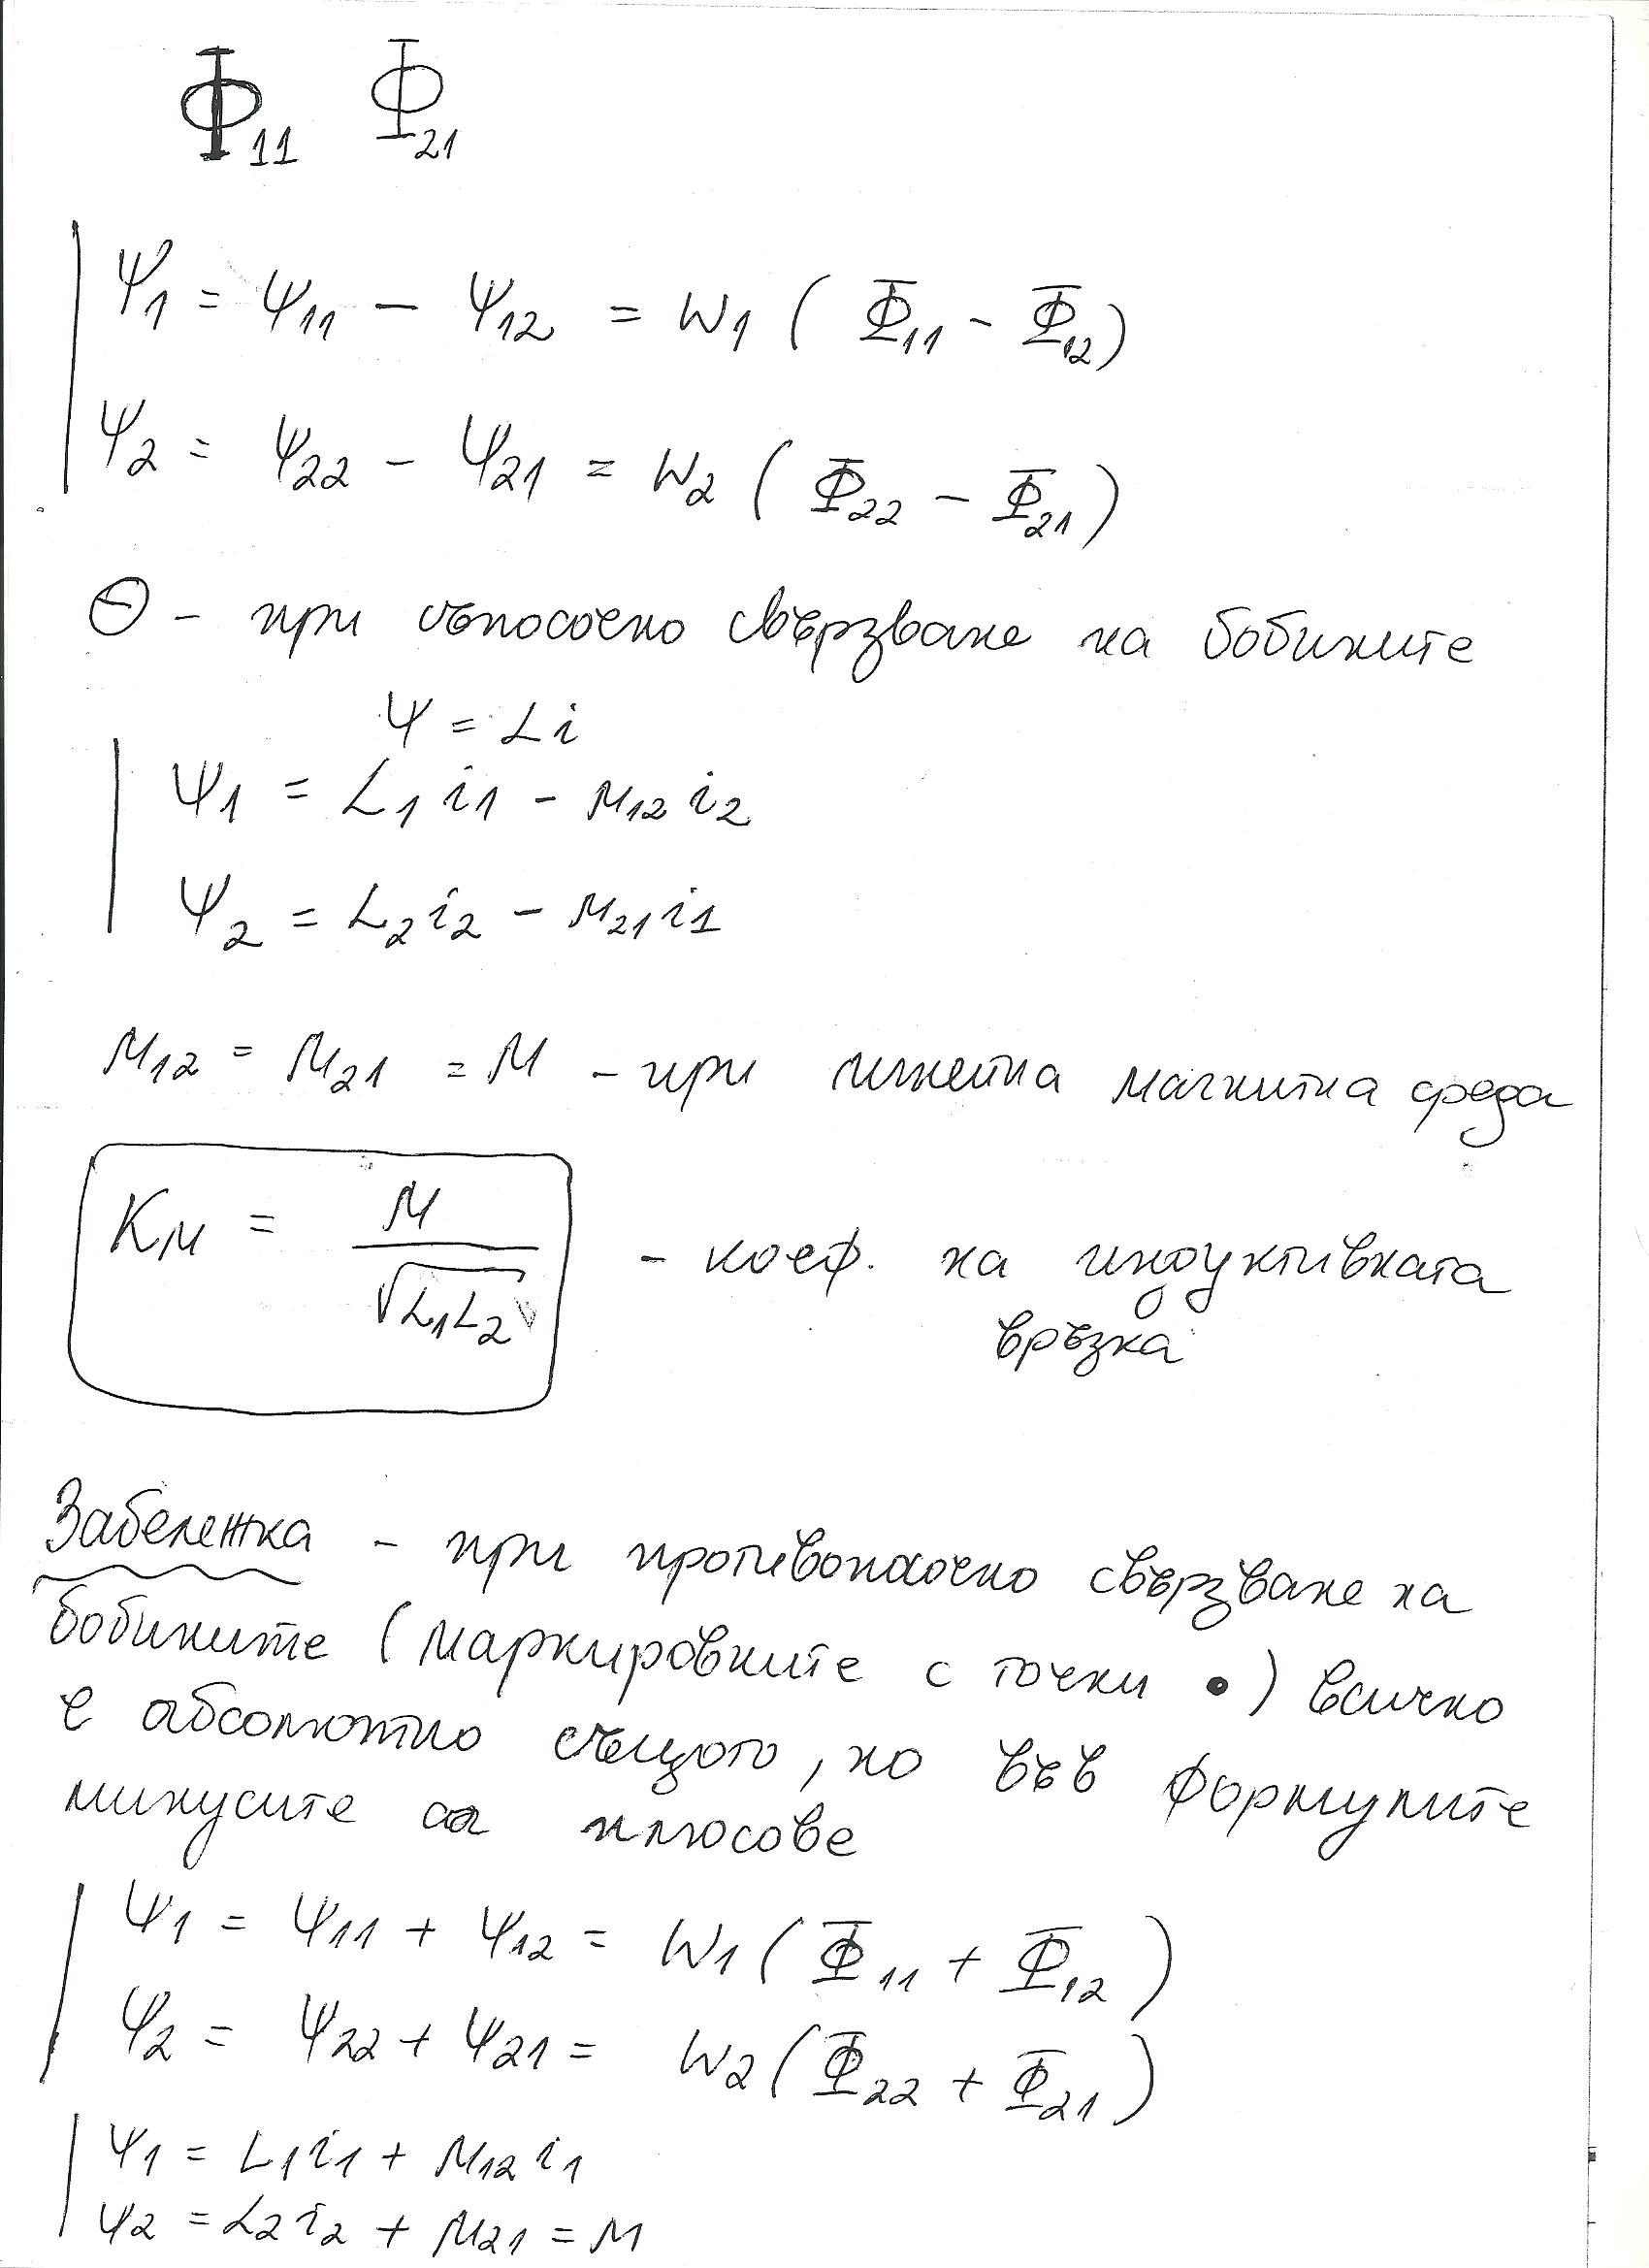 Φ₁₁ Φ₂₁
Ψ₁ = Ψ₁₁ - Ψ₁₂ = W₁ ( Φ₁₁ - Φ₁₂ )
Ψ₂ = Ψ₂₂ - Ψ₂₁ = W₂ ( Φ₂₂ - Φ₂₁ )
⊖ - при съпосочно свързване на бобините
Ψ = Li
Ψ₁ = L₁ i₁ - M₁₂ i₂
Ψ₂ = L₂ i₂ - M₂₁ i₁
M₁₂ = M₂₁ = M - при линейна магнитна среда
Kм = M / √L₁L₂ - коеф. на индуктивната
връзка
Забележка - при противопосочно свързване на
бобините (маркировките с точки •) всичко
е абсолютно същото, но във формулите
минусите са плюсове
Ψ₁ = Ψ₁₁ + Ψ₁₂ = W₁ ( Φ₁₁ + Φ₁₂ )
Ψ₂ = Ψ₂₂ + Ψ₂₁ = W₂ ( Φ₂₂ + Φ₂₁ )
Ψ₁ = L₁ i₁ + M₁₂ i₁
Ψ₂ = L₂ i₂ + M₂₁ = M